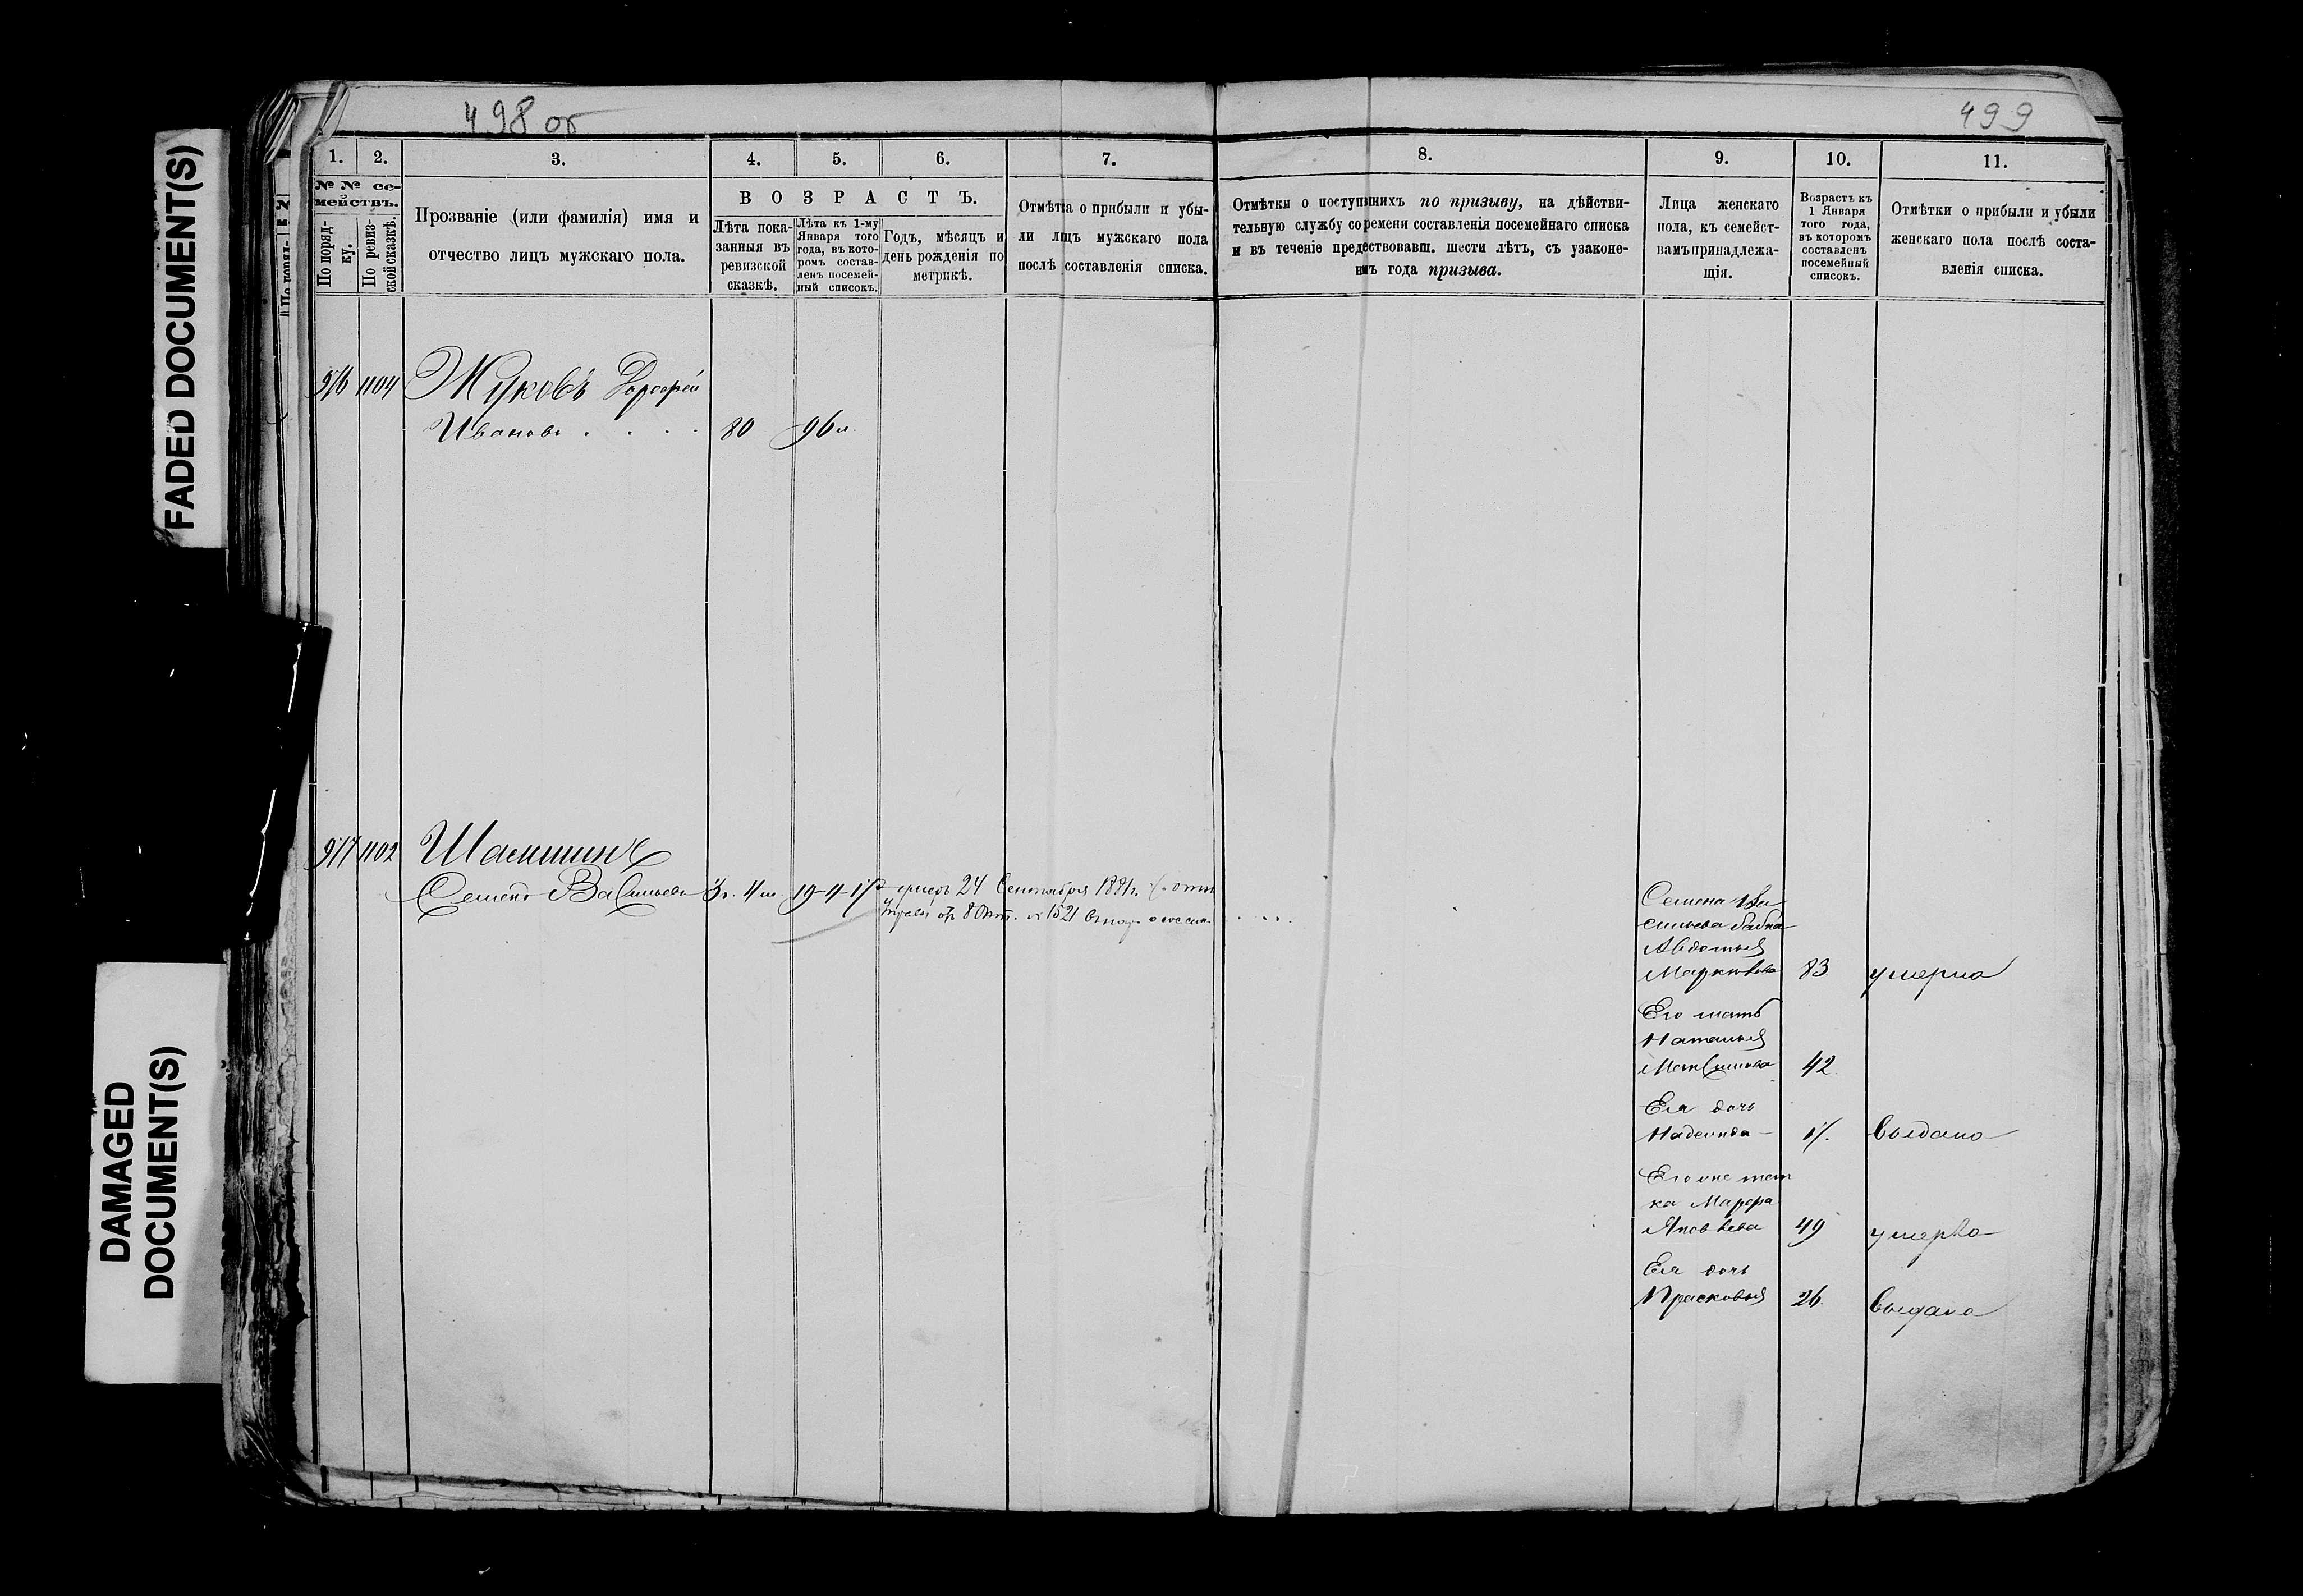 498 об
499
FADED DOCUMENT(S)
DAMAGED
DOCUMENT(S)
1.
2.
3.
4.
5.
6.
7.
8.
9.
10.
11.
№ № се-
мействъ.
По поряд-
ку.
По ревиз-
ской сказкѣ.
Прозваніе (или фамилія) имя и
отчество лицъ мужскаго пола.
ВОЗРАСТЪ.
Лѣта пока-
занныя въ
ревизской
сказкѣ.
Лѣта къ 1-му
Января того
года, въ кото-
ромъ состав-
ленъ посемей-
ный списокъ.
Годъ, мѣсяцъ и
день рожденія по
метрикѣ.
Отмѣтка о прибыли и убы-
ли лицъ мужскаго пола
послѣ составленія списка.
Отмѣтки о поступившихъ по призыву, на дѣйстви-
тельную службу со времени составленія посемейнаго списка
и въ теченіе предшествовавш. шести лѣтъ, съ узаконе-
нiемъ года призыва.
Лица женскаго
пола, къ семейст-
вамъ принадлежа-
щія.
Возрастъ къ
1 Января
того года,
въ которомъ
составленъ
посемейный
списокъ.
Отмѣтки о прибыли и убыли
женскаго пола послѣ соста-
вленія списка.
976 1101 Жуковъ Дорофей
Ивановъ . . . . 80 96 л.
977 1102
Семенъ Васильевъ 3 г. 4 м. 19-4-17
24 Сентября 1881 г.
8 Окт. № 1521
Семена Ва-
сильева бабка
Авдотья
83 умерла
Его мать
Наталья
42
Ея дочь
Надежда 17. выдана
Его же тет
ка Марфа
Яковлева 49 умерла
Ея дочь
Прасковья 26. выдана